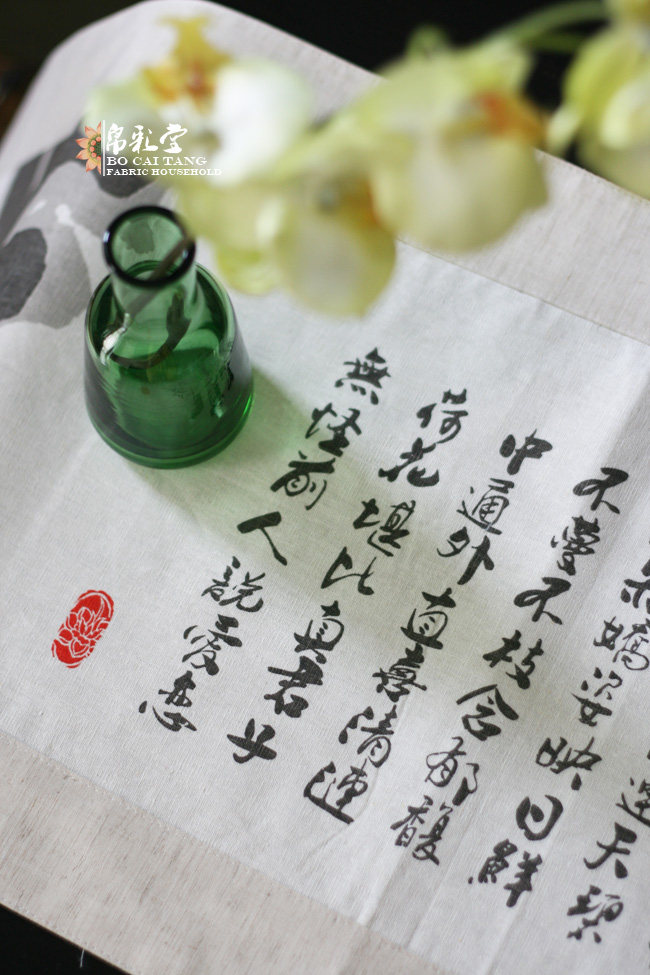 帛彩堂
BO CAI TANG
FABRIC HOUSEHOLD
天碧
嬌姿映日鮮
不蔓不枝含郁馥
中通外直喜清漣
荷花堪比真君子
無怪前人說愛戀